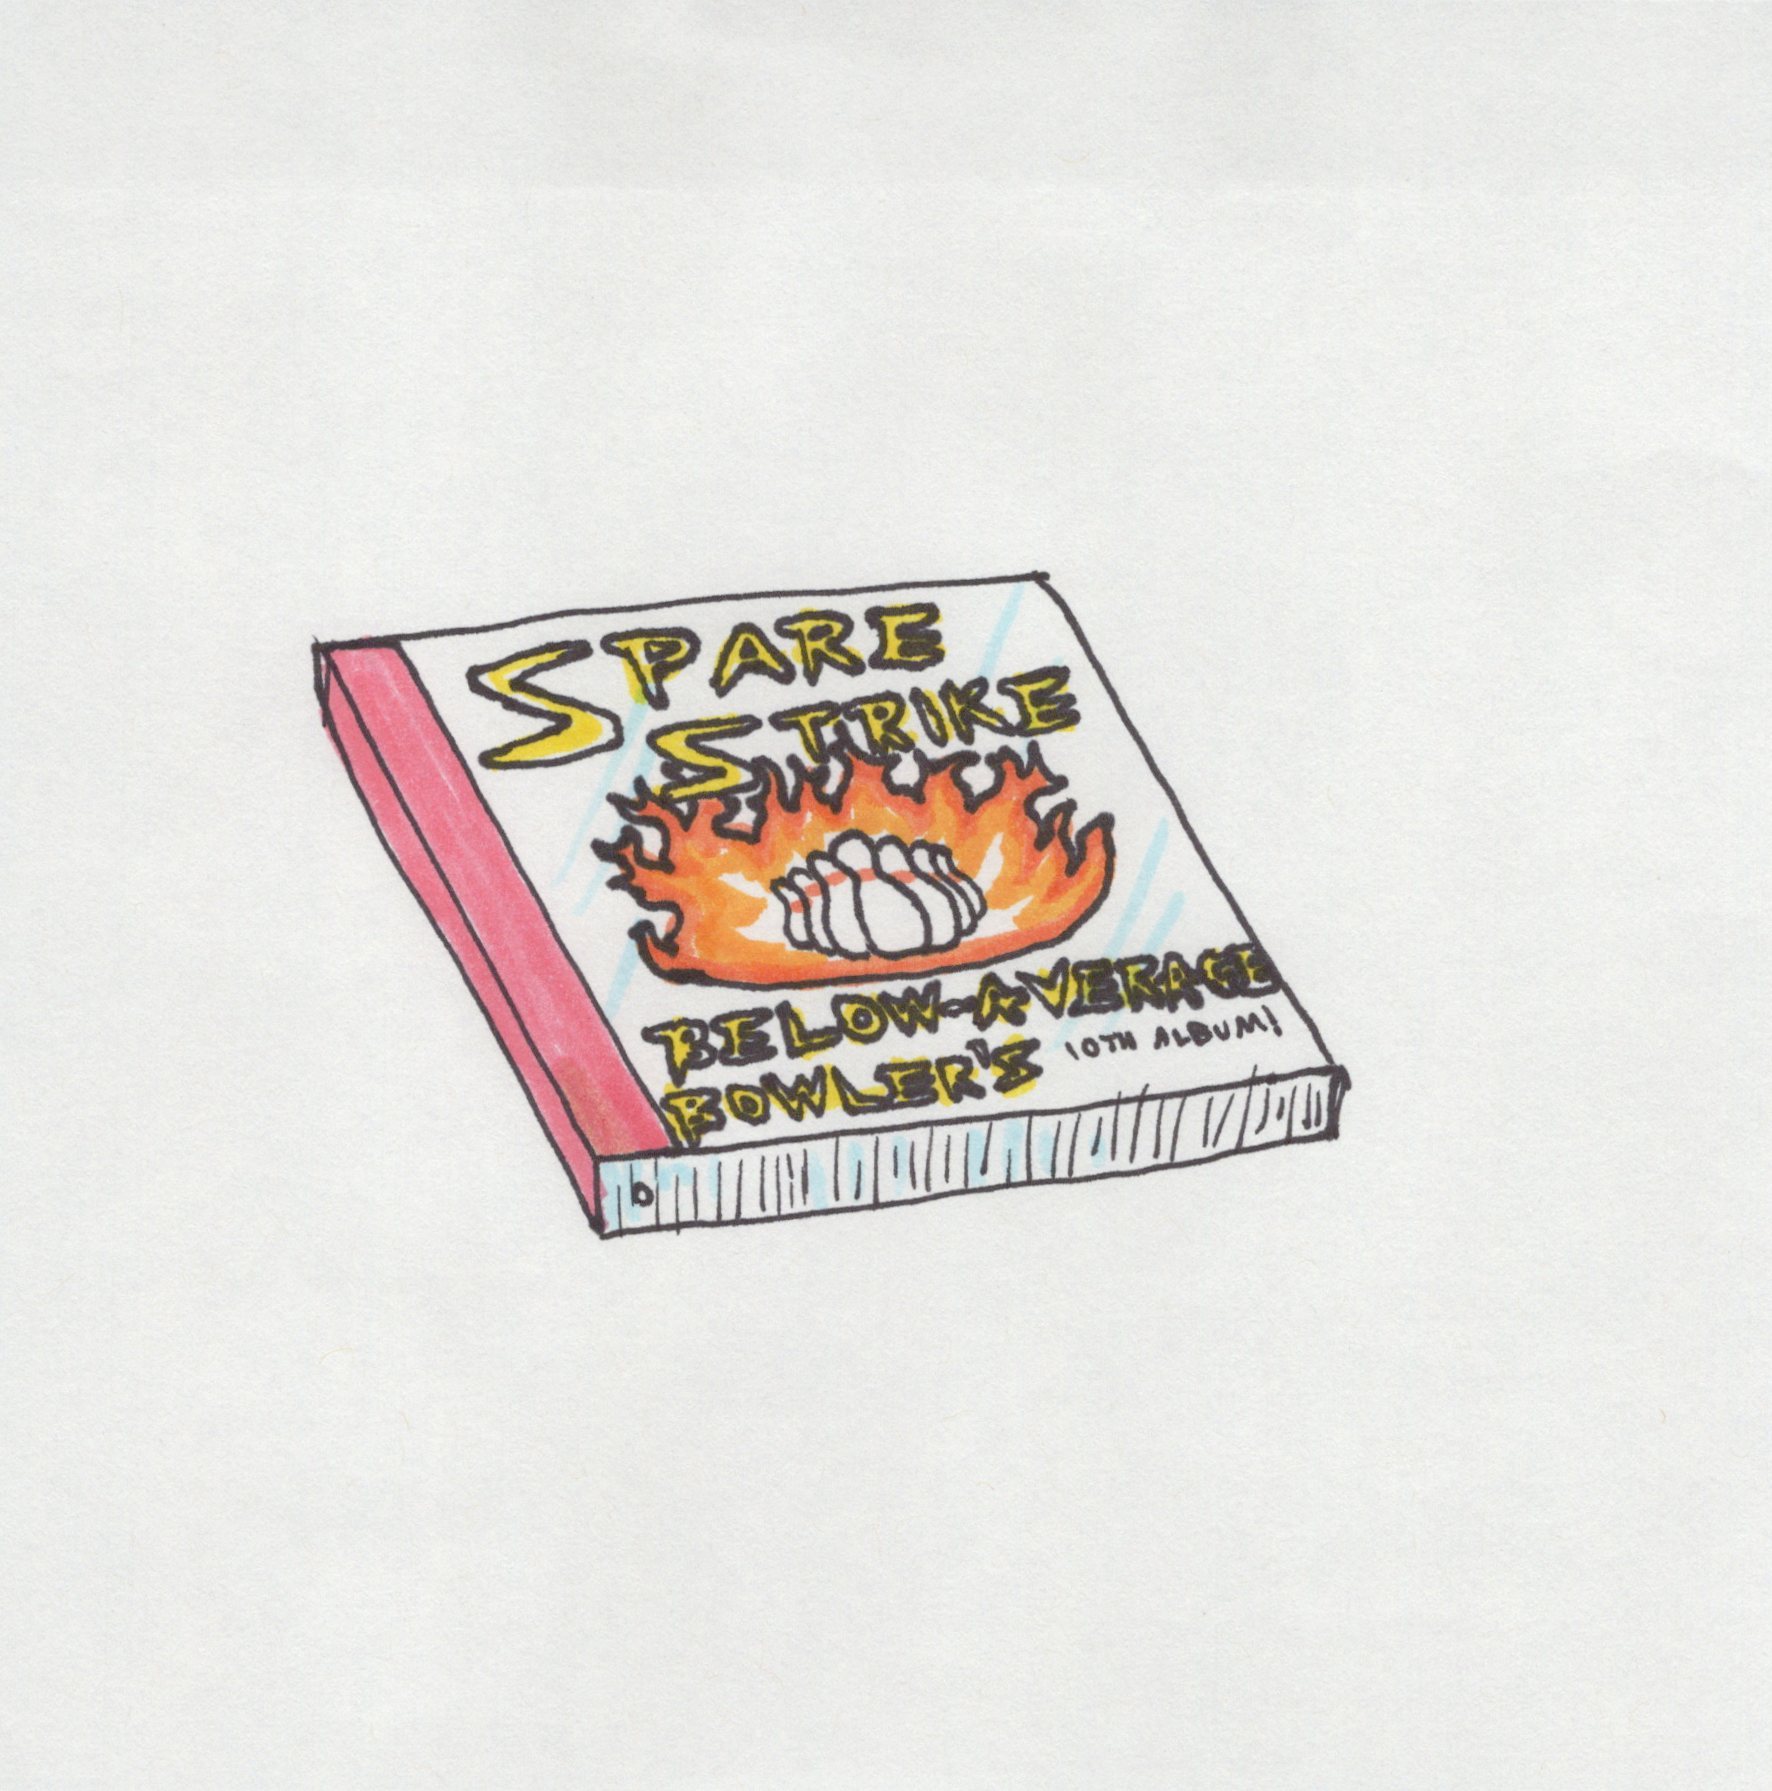 SPARE
STRIKE
BELOW-AVERAGE
BOWLER'S 10TH ALBUM!